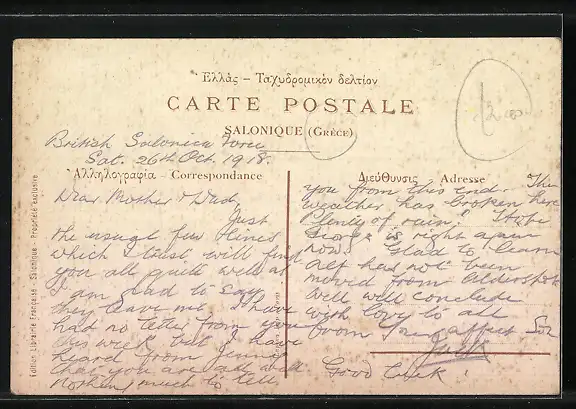 Ἑλλὰς – Ταχυδρομικὸν δελτίον
CARTE POSTALE
SALONIQUE (GRÈCE)
British Salonica Force
Sat. 26th Oct. 1918.
Ἀλληλογραφία - Correspondance
Dear Mother & Dad,
Just
the usual few lines
which I trust will find
you all quite well as
I am glad to say
they leave me. I have
had no letter from you
this week but I have
heard from Jenny
that you are all well
Nothing much to tell
Διεύθυνσις Adresse
you from this end. The
weather has broken here
Plenty of rain! Hope
George is right again
now. Glad to learn
Alf has not been
moved from Aldershot
Well will conclude
with love to all
from Your affect Son
Jack
Good Luck!
Edition Librairie Française - Salonique - Propriété exclusive